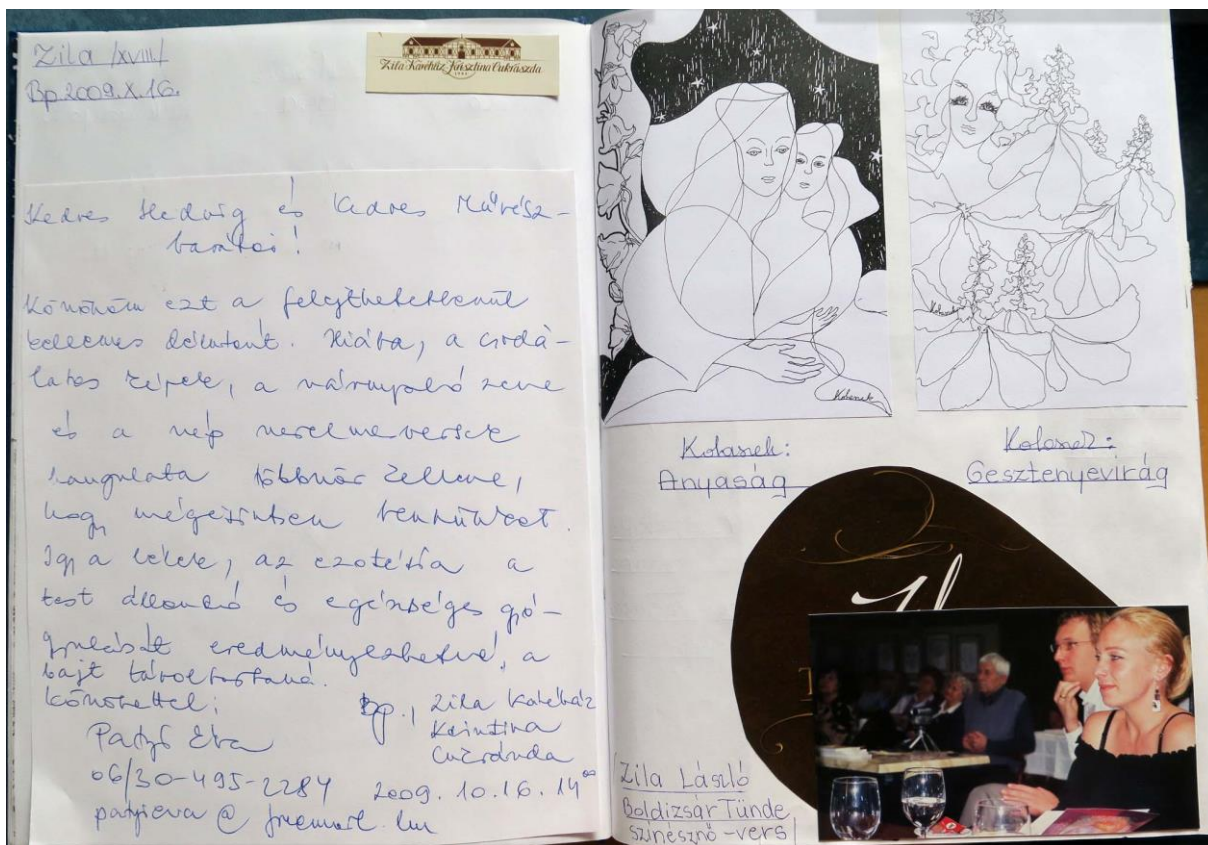 Zila /XVIII/
Bp. 2009. X. 16.
Zila Kávéház Krisztina Cukrászda
Kedves Hedvig és Kedves Művész-
barátai!
Köszönöm ezt a felejthetetlenül
kellemes délutánt. Hiába, a csodá-
latos képek, a zene
és a szép szerelmesversek
hangulata többször kellene,
hogy megérintsen bennünket.
Így a lélek, az ezotéria a
test állandó és egészséges gyó-
gyulását eredményezhetné, a
bajt távoltartaná.
Köszönettel:
Patyi Éva
06/30-495-2284
patyieva @ freemail.hu
Bp., Zila Kávéház
Krisztina
Cukrászda
2009. 10. 16. 14⁰⁰
Kolosnek
Kolosnek:
Anyaság
Kolosnek:
Gesztenyevirág
Zila László
Boldizsár Tünde
színésznő - vers